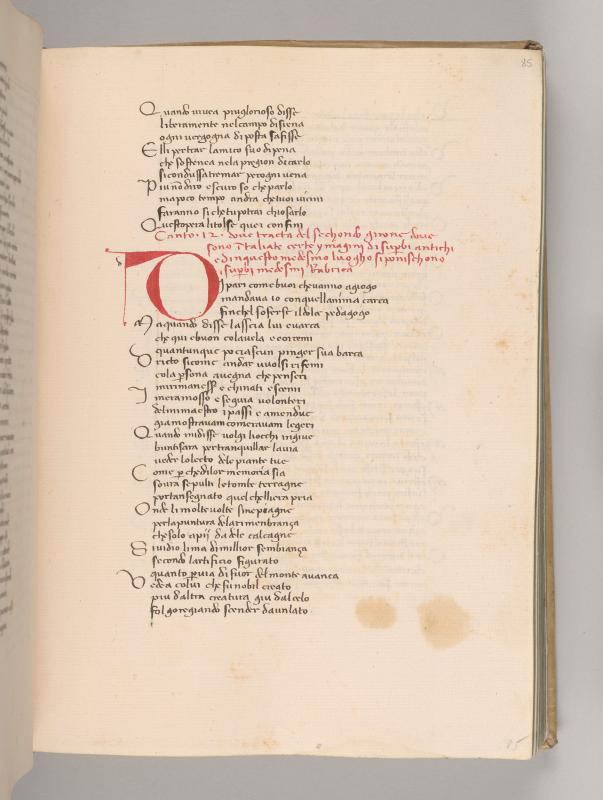 85
Quando vivea piu glorioso disse
liberamente nel campo di siena
ogni vergogna diposta saffisse
Elli per trar lamico suo di pena
che sostenea nela pregion di carlo
si condussa tremar per ogni vena
Piu nō diro e scuro so che parlo
ma poco tempo andra che tuoi vicini
faranno si che tu potrai chiosarlo
Questopera li tolse quei confini
Canto .12. dove tracta del sechondo girone dove
sono ītaliate certe ymagini di supbi antichi
e di questo medesmo luogho si ponischono
i supbi medesmi Rubrica
Di pari come buoi che vanno a giogo
mandava io con quellanima carca
fin chel soferse il dolce pedagogo
Ma quando disse lasscia lui e varca
che qui e buon cola vela e coi remi
quantunque po ciascun pinger sua barca
Dricto si come andar vuolsi rifemi
cola psona avegna che penseri
mi rimanesser e chinati e scemi
Io mera mosso e seguia volonteri
del mi maestro i passi e amendue
gia mostravam come ravam legeri
Quando mi disse volgi liocchi in giue
buon ti sara per tranquillar la via
veder lo lecto dele piante tue
Come p che di lor memoria sia
sovra sepulti le tombe terragne
portan segnato quel chelli era pria
Onde li molte volte si ne piagne
per la puntura dela rimenbrança
che solo a pii da dele calcagne
Si vidio li ma di millior sembiança
secondo lartificio figurato
quanto p via di fuor del monte avança
Vedea colui che fu nobil creato
piu daltra creatura giu dal celo
folgoregiando scender da un lato
85